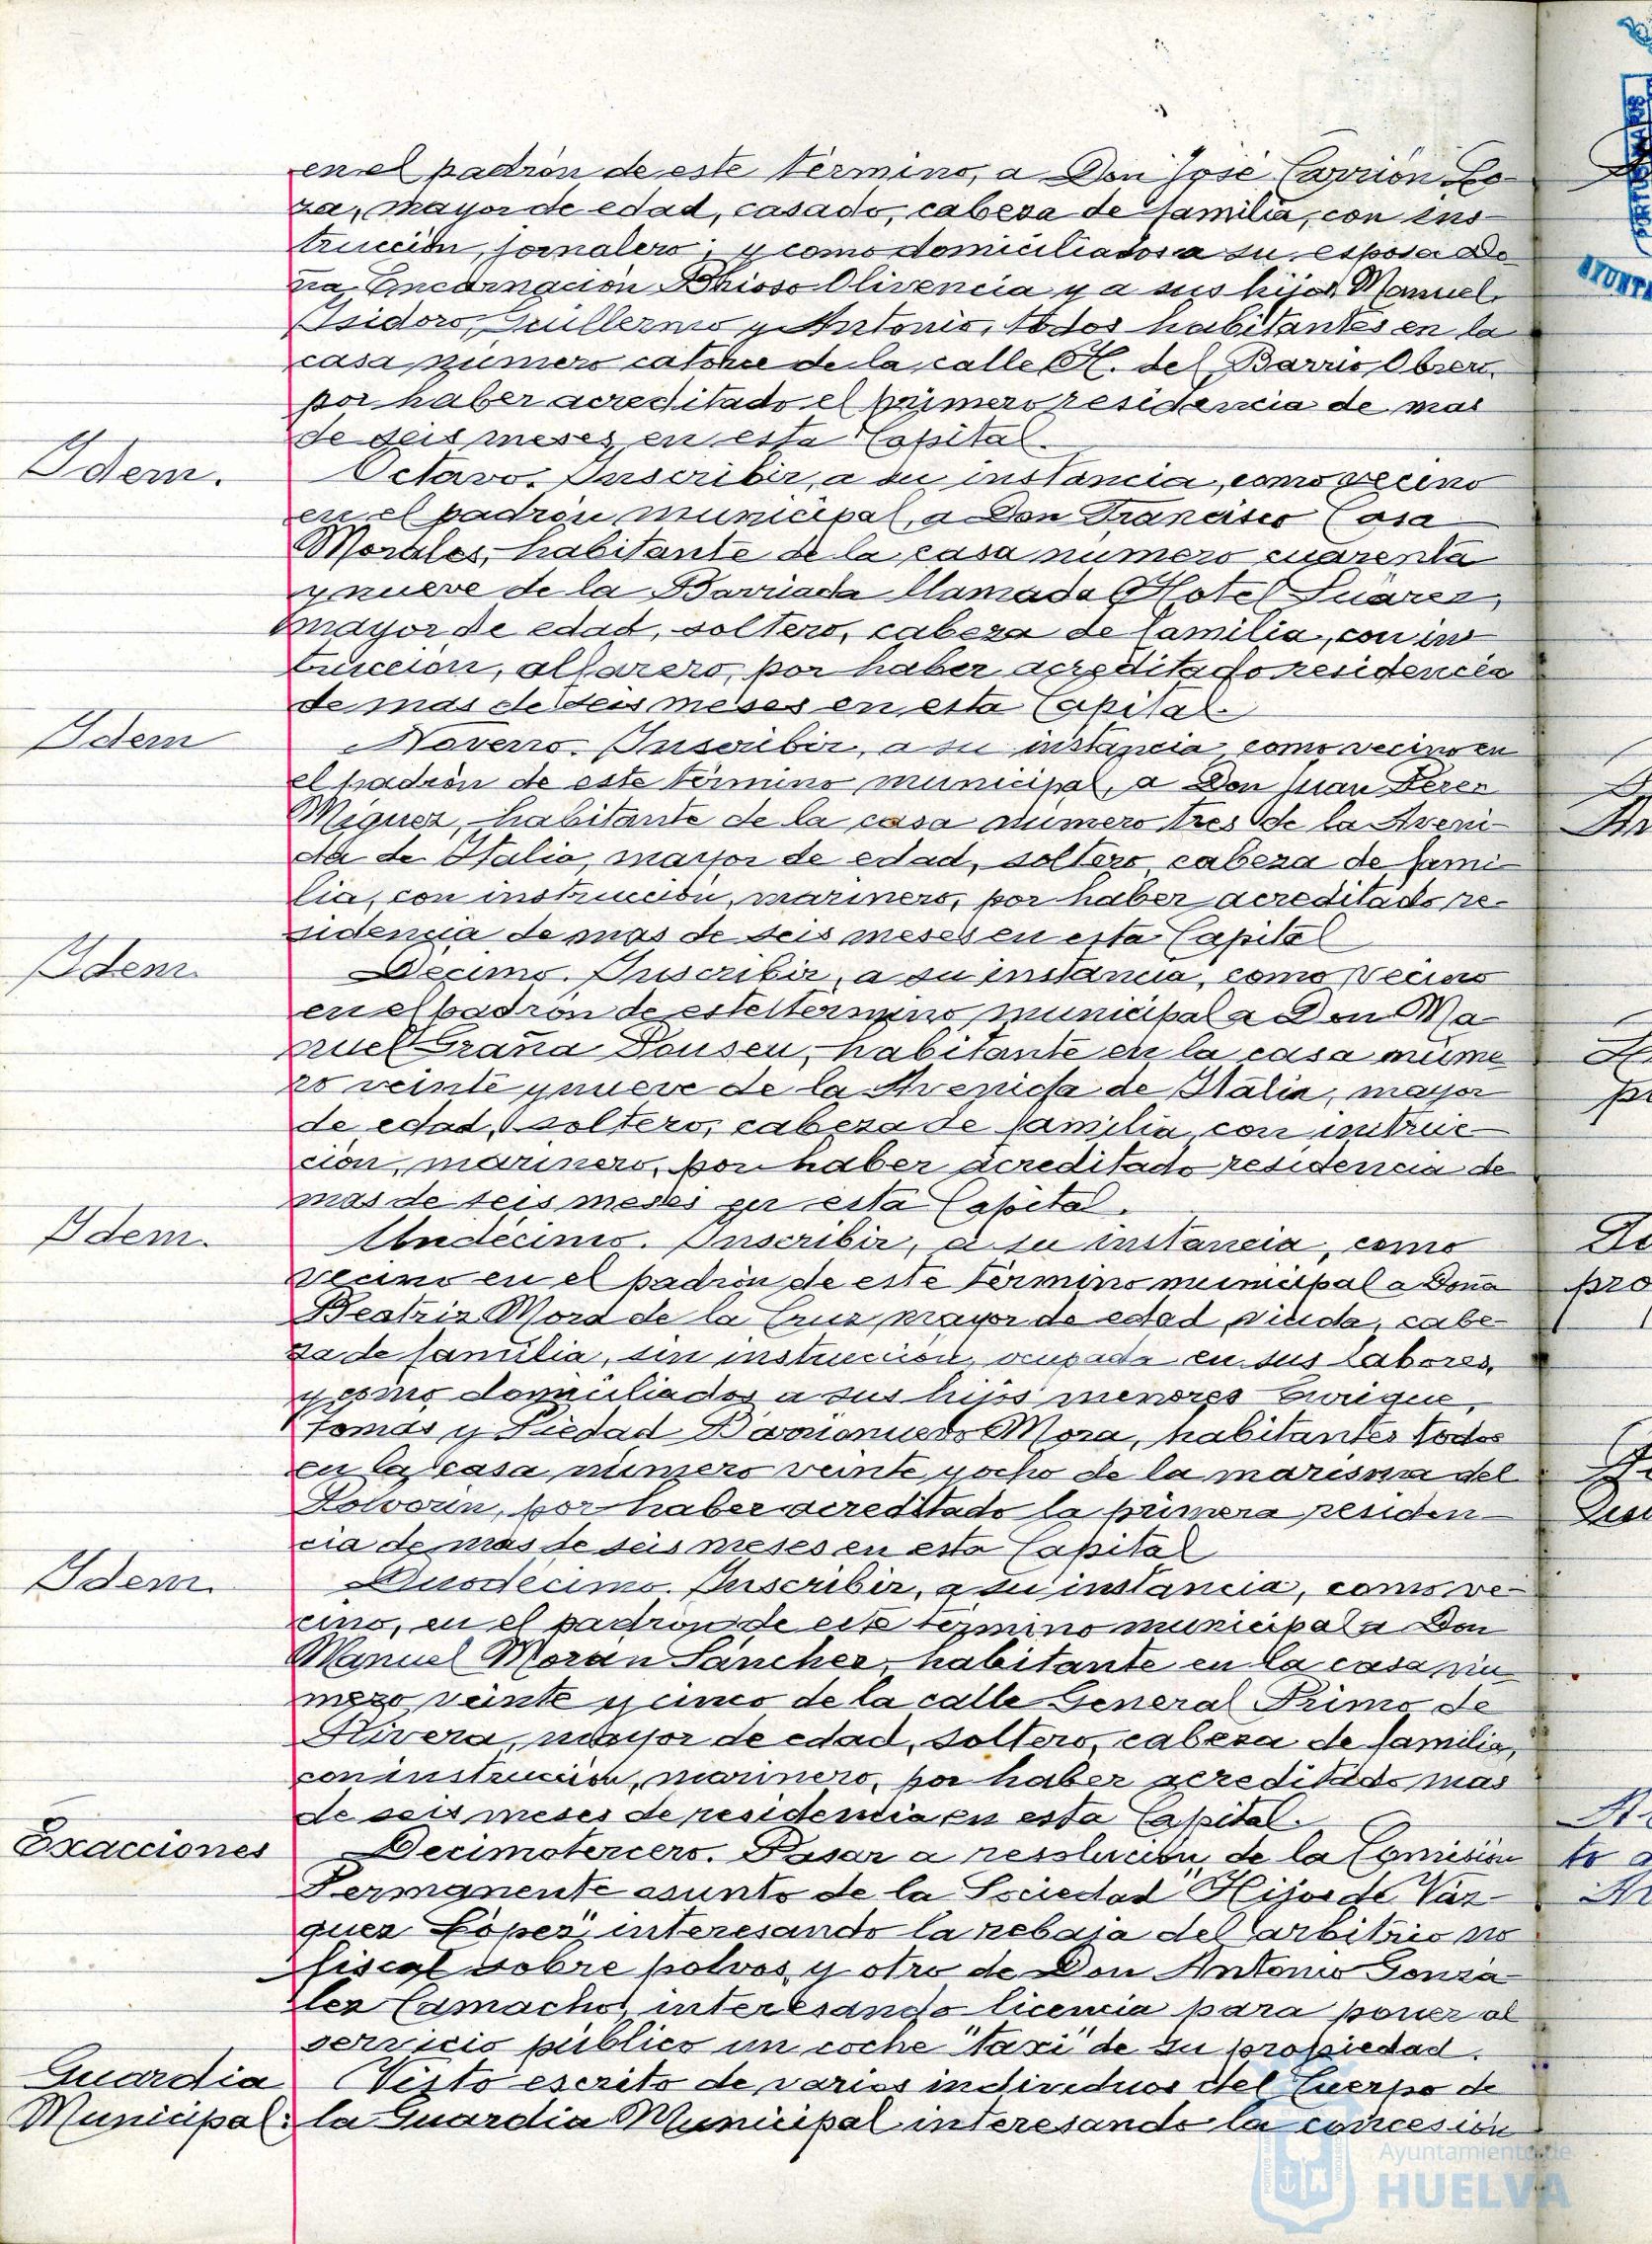 en el padrón de este término, a Don José Carrión Lo-
za, mayor de edad, casado, cabeza de familia, con ins-
trucción, jornalero; y como domiciliados a su esposa Do-
ña Encarnación Olivencia y a sus hijos Manuel
Isidoro, Guillermo y Antonio, todos habitantes en la
casa número catorce de la calle H. del Barrio Obrero,
por haber acreditado el primero residencia de mas
de seis meses en esta Capital.
Idem.
Octavo. Inscribir, a su instancia, como vecino
en el padrón municipal, a Don Francisco Casa
Morales, habitante de la casa número cuarenta
y nueve de la Barriada llamada Hotel Suárez,
mayor de edad, soltero, cabeza de familia, con ins-
trucción, alfarero, por haber acreditado residencia
de mas de seis meses en esta Capital.
Idem
Noveno. Inscribir, a su instancia, como vecino en
el padrón de este término municipal, a Don Juan Pérez
Miguez, habitante de la casa número tres de la Aveni-
da de Italia, mayor de edad, soltero, cabeza de fami-
lia, con instrucción, marinero, por haber acreditado re-
sidencia de mas de seis meses en esta Capital
Idem.
Décimo. Inscribir, a su instancia, como vecino
en el padrón de este término municipal a Don Ma-
nuel Graña Pouseu, habitante en la casa núme
ro veinte y nueve de la Avenida de Italia, mayor
de edad, soltero, cabeza de familia, con instruc-
ción, marinero, por haber acreditado residencia de
mas de seis meses en esta Capital.
Idem.
Undécimo. Inscribir, a su instancia, como
vecino en el padrón de este término municipal a Doña
Beatriz Mora de la Cruz, mayor de edad, viuda, cabe-
za de familia, sin instrucción, ocupada en sus labores,
y como domiciliados a sus hijos menores Enrique,
Tomás y Piedad Barrionuevo Mora, habitantes todos
en la casa número veinte y ocho de la marisma del
Polvorín, por haber acreditado la primera residen-
cia de mas de seis meses en esta Capital
Idem.
Duodécimo. Inscribir, a su instancia, como ve-
cino, en el padrón de este término municipal a Don
Manuel Morán Sánchez, habitante en la casa nú-
mero veinte y cinco de la calle General Primo de
Rivera, mayor de edad, soltero, cabeza de familia,
con instrucción, marinero, por haber acreditado mas
de seis meses de residencia en esta Capital.
Exacciones
Decimotercero. Pasar a resolución de la Comisión
Permanente asunto de la Sociedad "Hijos de Váz-
quez López", interesando la rebaja del arbitrio no
fiscal sobre polvos y otro de Don Antonio Gonzá-
lez Camacho, interesando licencia para poner al
servicio público un coche "taxi" de su propiedad.
Guardia
Municipal.
Visto escrito de varios individuos del Cuerpo de
la Guardia Municipal interesando la concesión
Ayuntamiento de
HUELVA